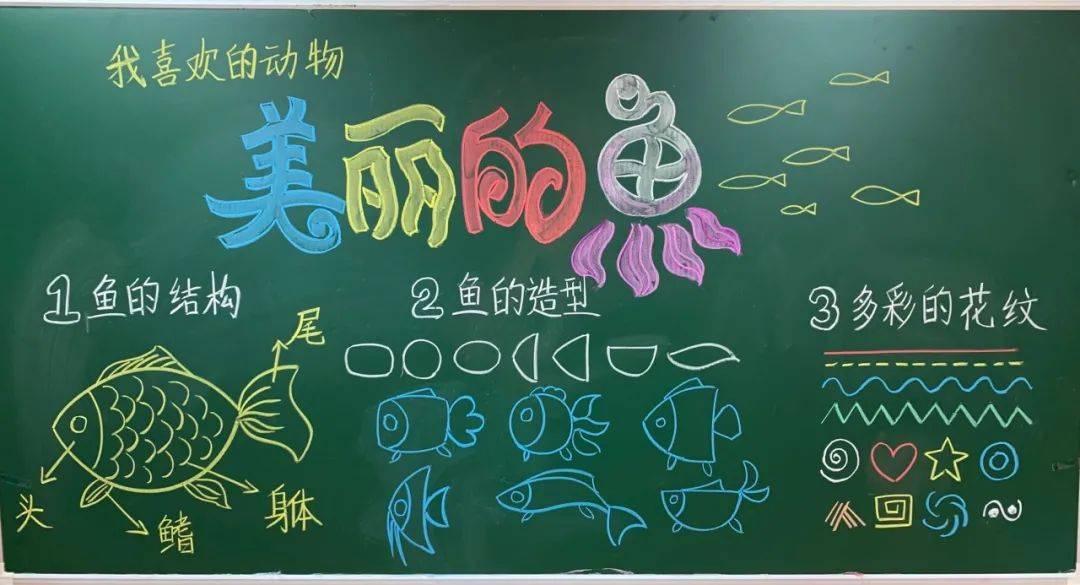 我喜欢的动物
美丽的鱼
1 鱼的结构
尾
头
鳍
身体
2 鱼的造型
3 多彩的花纹